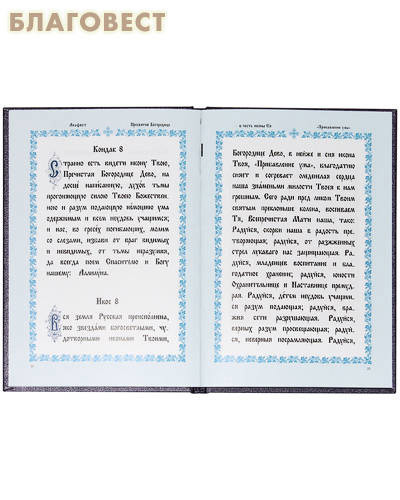 БЛАГОВЕСТ
Акафист Пресвятой Богородице
Кондак 8
Странно есть видети икону Твою,
Пречистая Богородице Дево, на
досце написанную, духов тьмы
прогоняющую силою Твоею Божествен-
ною и разум подающую немощию ума
одержимым и всем неудобь учащимся;
и нас, во гресех погибающих, молим
со слезами, избави от враг видимых
и невидимых, от тьмы неразумия,
да всегда поем Спасителю и Богу
нашему: Аллилуиа.
Икос 8
Вся земля Русская преисполнена,
яко звездами богосветлыми, чу-
дотворными иконами Твоими,
в честь иконы Ея «Прибавление ума»
Богородице Дево, в нейже и сия икона
Твоя, «Прибавление ума»,
сияет и согревает оледенелая сердца
наша знаменьми милости Твоея к нам
грешным. Сего ради пред ликом Твоим
святым преклоньше колена, воспеваем
Ти, Всепречистая Мати наша, тако:
Радуйся, скорби наша в радость пре-
творяющая; радуйся, от разжженных
стрел лукаваго нас защищающая. Ра-
дуйся, младенцев воспитание и бла-
годатное хранение; радуйся, юности
Охранительнице и Наставнице премуд-
рая. Радуйся, детем неудобь учащим-
ся разум подающая; радуйся, вра-
жия сети разрушающая. Радуйся,
верных разум просвещающая; радуй-
ся, неверныя посрамляющая. Радуйся,